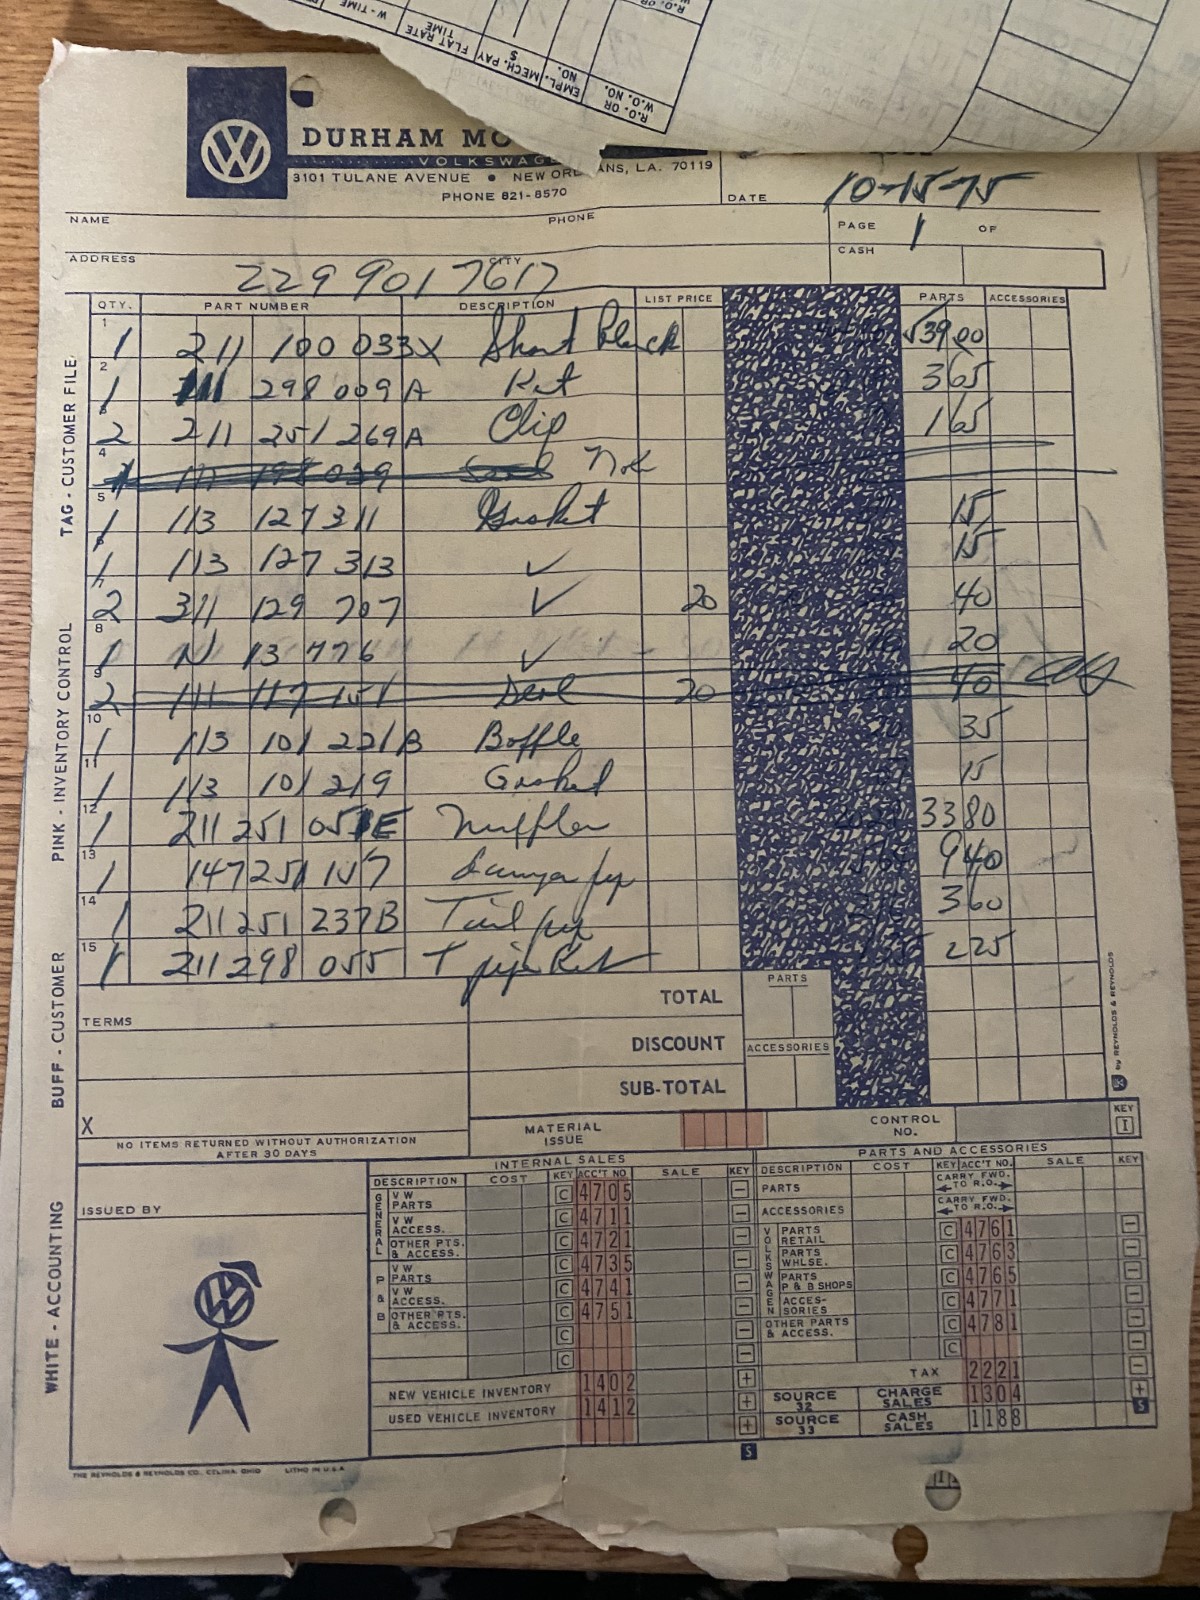 W-TIME
FLAT RATE TIME
MECH. PAY $
EMPL. NO.
R.O. OR W.O. NO.
DURHAM MO
VOLKSWAGE
3101 TULANE AVENUE • NEW ORL ANS, LA. 70119
PHONE 821-8570
DATE 10-15-75
NAME PHONE
PAGE 1 OF
ADDRESS CITY CASH
229 901 7617
QTY. PART NUMBER DESCRIPTION LIST PRICE PARTS ACCESSORIES
1 1 211 100 033X Short Block 39900
2 1 111 298 009 A Kit 365
2 211 251 269 A Clip 165
4 1 111 198 039 Seal
5 1 113 127 311 Gasket 15
1 113 127 313 ✓ 15
2 311 129 707 ✓ 20 40
8 1 N 13 776 ✓ 20
9 2 111 117 151 Seal 20 40
10 1 113 101 221 B Baffle 35
11 1 113 101 219 Gasket 15
12 1 211 251 051E Muffler 3380
13 1 147 251 147 940
14 1 211 251 237B Tail 360
15 1 211 298 055 T pipe Kit 225
TAG - CUSTOMER FILE
PINK - INVENTORY CONTROL
BUFF - CUSTOMER
WHITE - ACCOUNTING
TERMS
TOTAL PARTS
DISCOUNT ACCESSORIES
SUB-TOTAL
by REYNOLDS & REYNOLDS
X
NO ITEMS RETURNED WITHOUT AUTHORIZATION
AFTER 30 DAYS
MATERIAL ISSUE
CONTROL NO.
KEY I
ISSUED BY
INTERNAL SALES
DESCRIPTION COST KEY ACC'T NO. SALE KEY
GENERAL
VW PARTS C 4705 −
VW ACCESS. C 4711 −
OTHER PTS. & ACCESS. C 4721 −
P & B
VW PARTS C 4735 −
VW ACCESS. C 4741 −
OTHER PTS. & ACCESS. C 4751 −
C −
C −
NEW VEHICLE INVENTORY 1402 +
USED VEHICLE INVENTORY 1412 +
S
PARTS AND ACCESSORIES
DESCRIPTION COST KEY ACC'T NO. SALE KEY
PARTS CARRY FWD. TO R.O.
ACCESSORIES CARRY FWD. TO R.O.
VOLKSWAGEN
PARTS RETAIL C 4761 −
PARTS WHLSE. C 4763 −
PARTS P & B SHOPS C 4765 −
ACCESSORIES C 4771 −
OTHER PARTS & ACCESS. C 4781 −
C −
TAX 2221 −
SOURCE 32 CHARGE SALES 1304 +
SOURCE 33 CASH SALES 1188 S
THE REYNOLDS & REYNOLDS CO., CELINA, OHIO LITHO IN U.S.A.